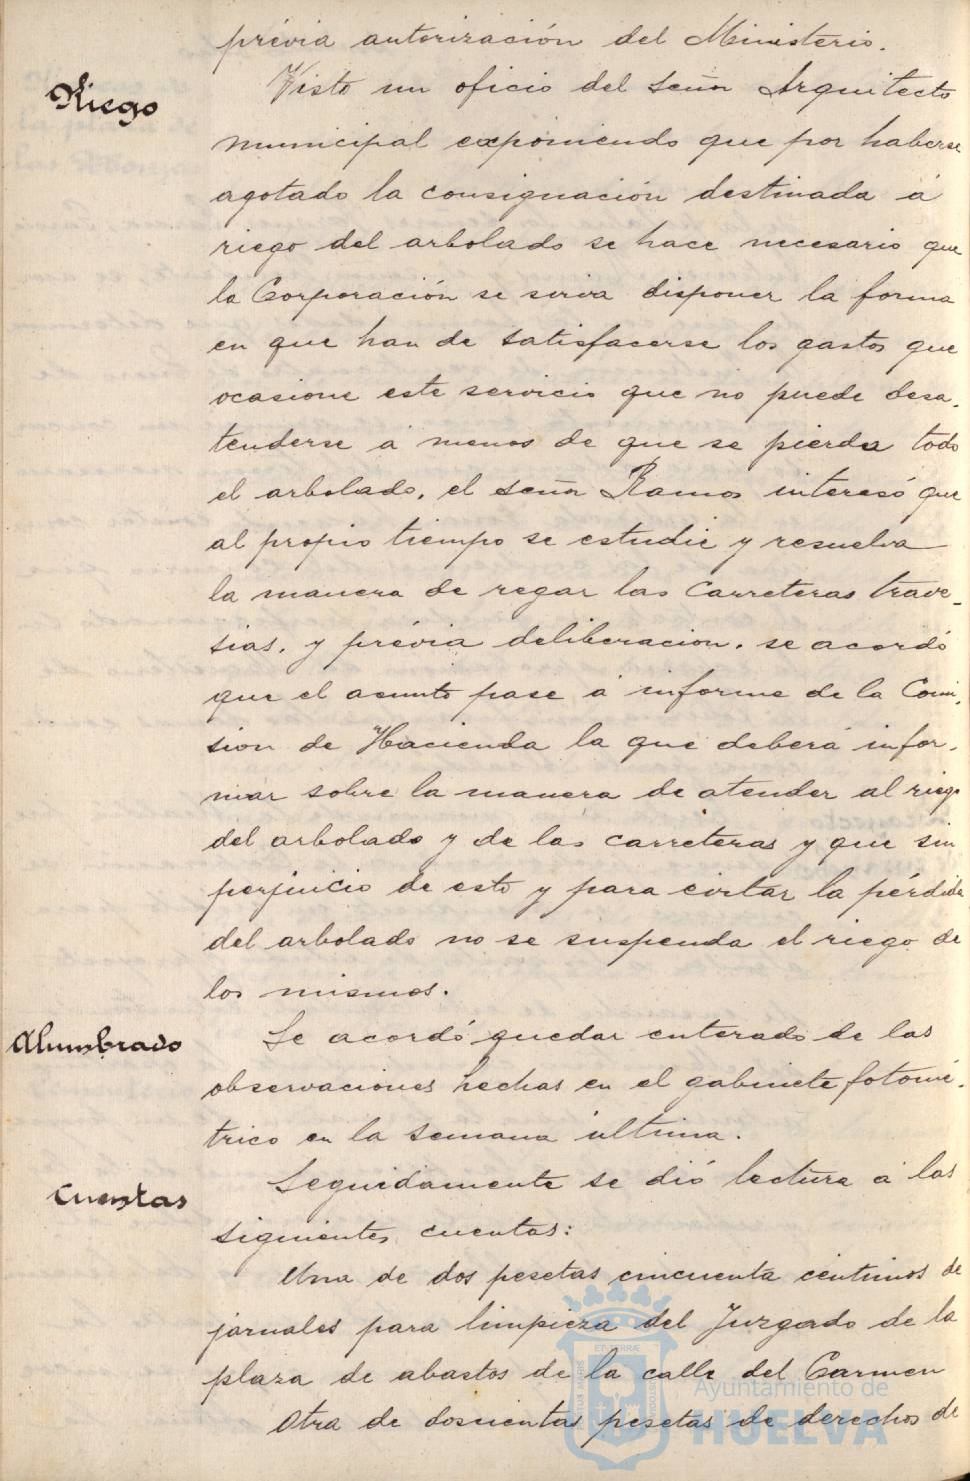 prévia autorización del Ministerio.
Riego
Visto un oficio del señor Arquitecto
municipal exponiendo que por haberse
agotado la consignación destinada á
riego del arbolado se hace necesario que
la Corporación se sirva disponer la forma
en que han de satisfacerse los gastos que
ocasione este servicio que no puede desa-
tenderse á menos de que se pierda todo
el arbolado, el señor Ramos interesó que
al propio tiempo se estudie y resuelva
la manera de regar las carreteras trave-
sias, y prévia deliberacion, se acordó
que el asunto pase á informe de la Comi-
sion de Hacienda la que deberá infor-
mar sobre la manera de atender al riego
del arbolado y de las carreteras y que sin
perjuicio de esto y para evitar la pérdida
del arbolado no se suspenda el riego de
los mismos.
Alumbrado
Se acordó quedar enterado de las
observaciones hechas en el gabinete fotomé-
trico en la semana última.
Cuentas
Seguidamente se dió lectura á las
siguientes cuentas:
Una de dos pesetas cincuenta centimos de
jornales para limpieza del Juzgado de la
plaza de abastos de la calle del Carmen
Otra de doscientas pesetas de derechos de
Ayuntamiento de
HUELVA